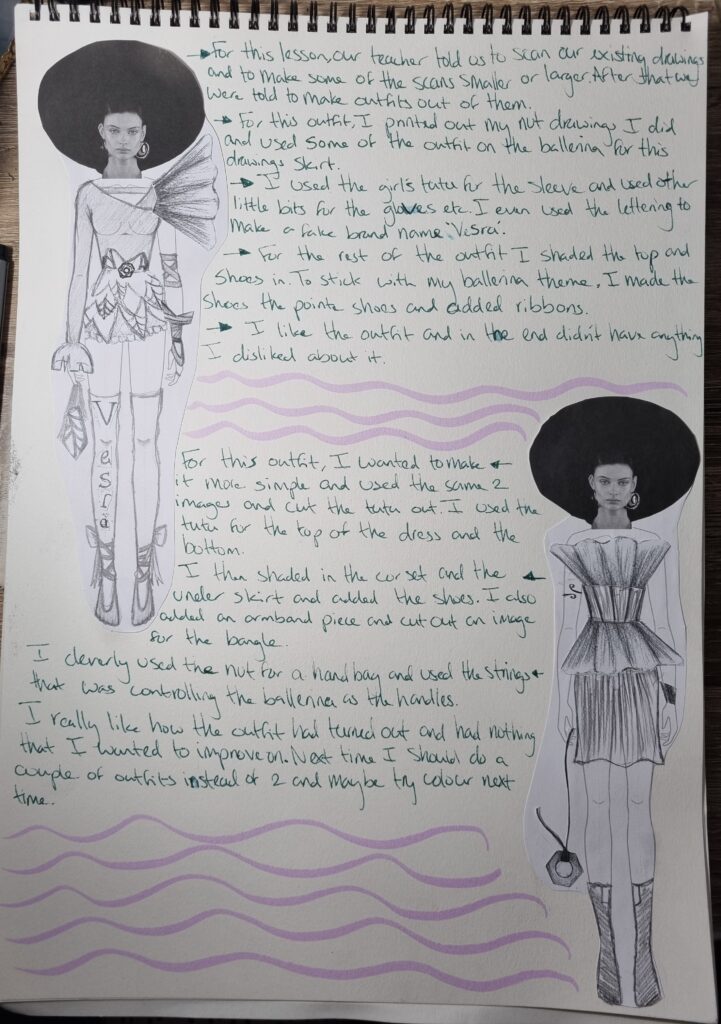 For this lesson, our teacher told us to scan our existing drawings
and to make some of the scans smaller or larger. After that we
were told to make outfits out of them.
For this outfit, I printed out my nut drawings I did
and used some of the outfit on the ballerina for this
drawings skirt.
I used the girl's tutu for the sleeve and used other
little bits for the gloves etc. I even used the lettering to
make a fake brand name 'Vesra'.
For the rest of the outfit I shaded the top and
shoes in. To stick with my ballerina theme, I made the
shoes the pointe shoes and added ribbons.
I like the outfit and in the end didn't have anything
I disliked about it.
Vesra
For this outfit, I wanted to make
it more simple and used the same 2
images and cut the tutu out. I used the
tutu for the top of the dress and the
bottom.
I then shaded in the corset and the
under skirt and added the shoes. I also
added an armband piece and cut out an image
for the bangle.
I cleverly used the nut for a handbag and used the strings
that was controlling the ballerina as the handles.
I really like how the outfit had turned out and had nothing
that I wanted to improve on. Next time I should do a
couple of outfits instead of 2 and maybe try colour next
time.